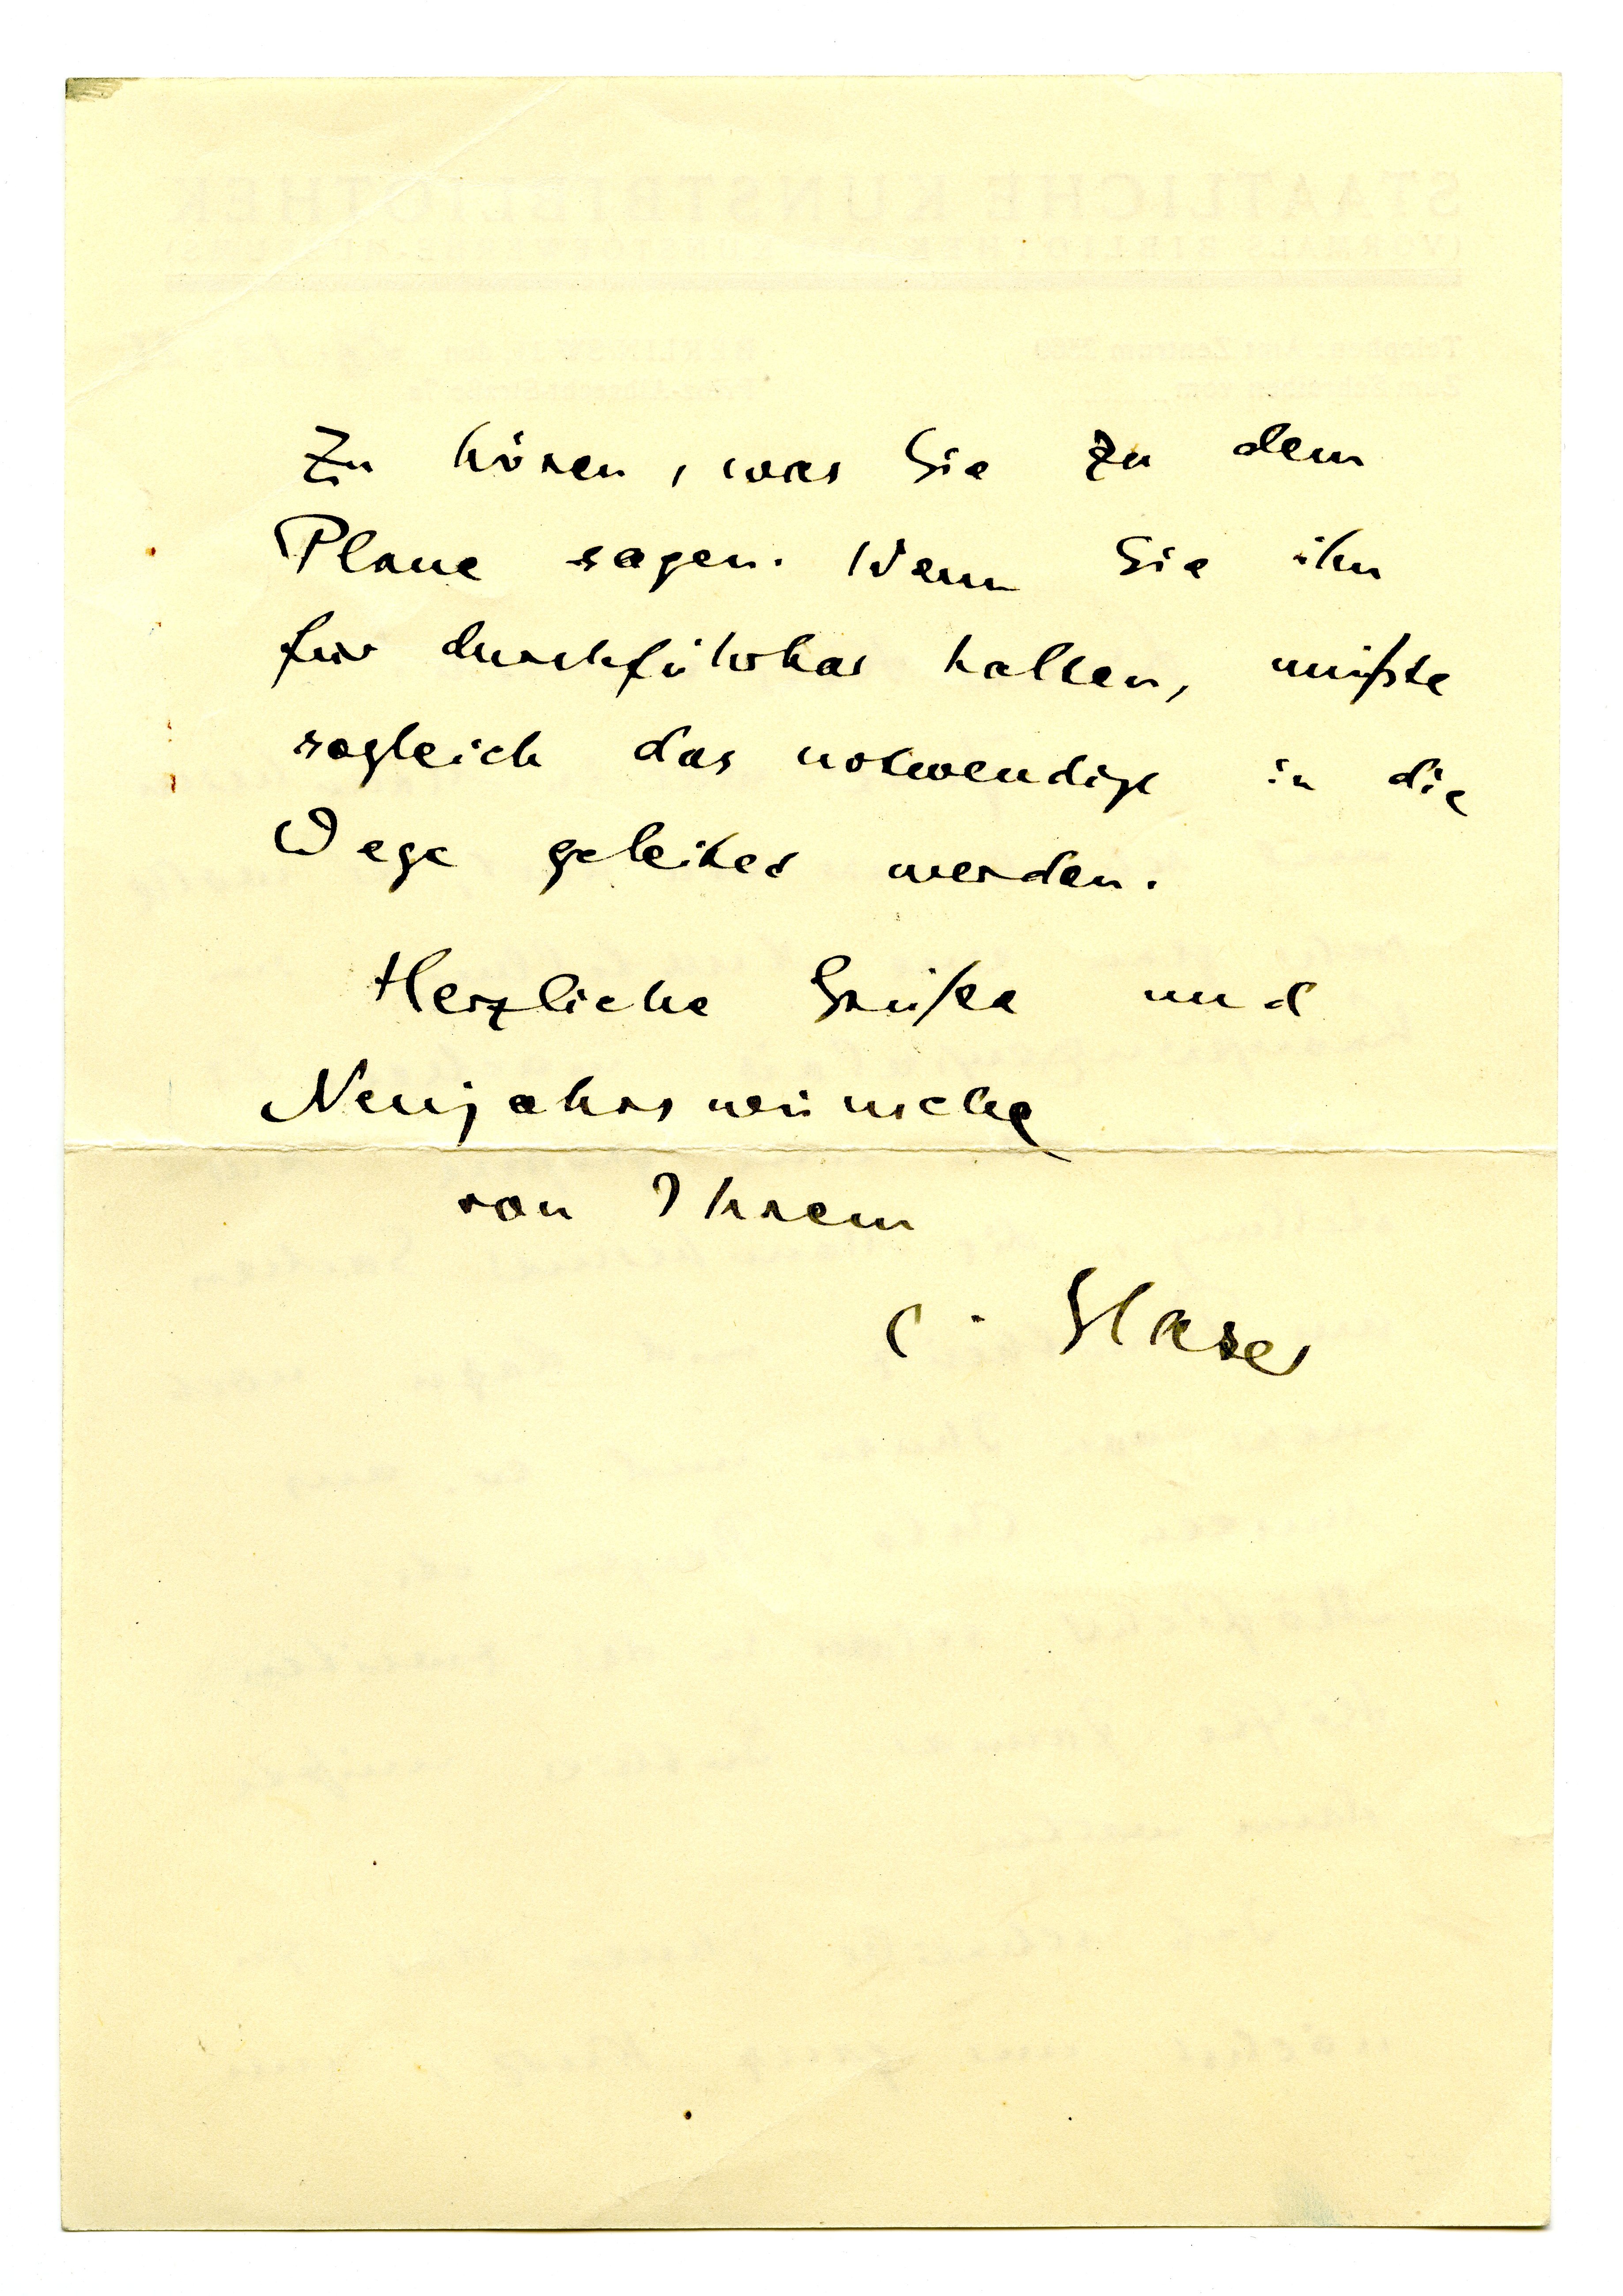 zu hören, was Sie zu dem
Plane sagen. Wenn Sie ihn
für durchführbar halten, müßte
sogleich das notwendige in die
Wege geleitet werden.
Herzliche Grüße und
Neujahrswünsche
von Ihrem
C. Glaser